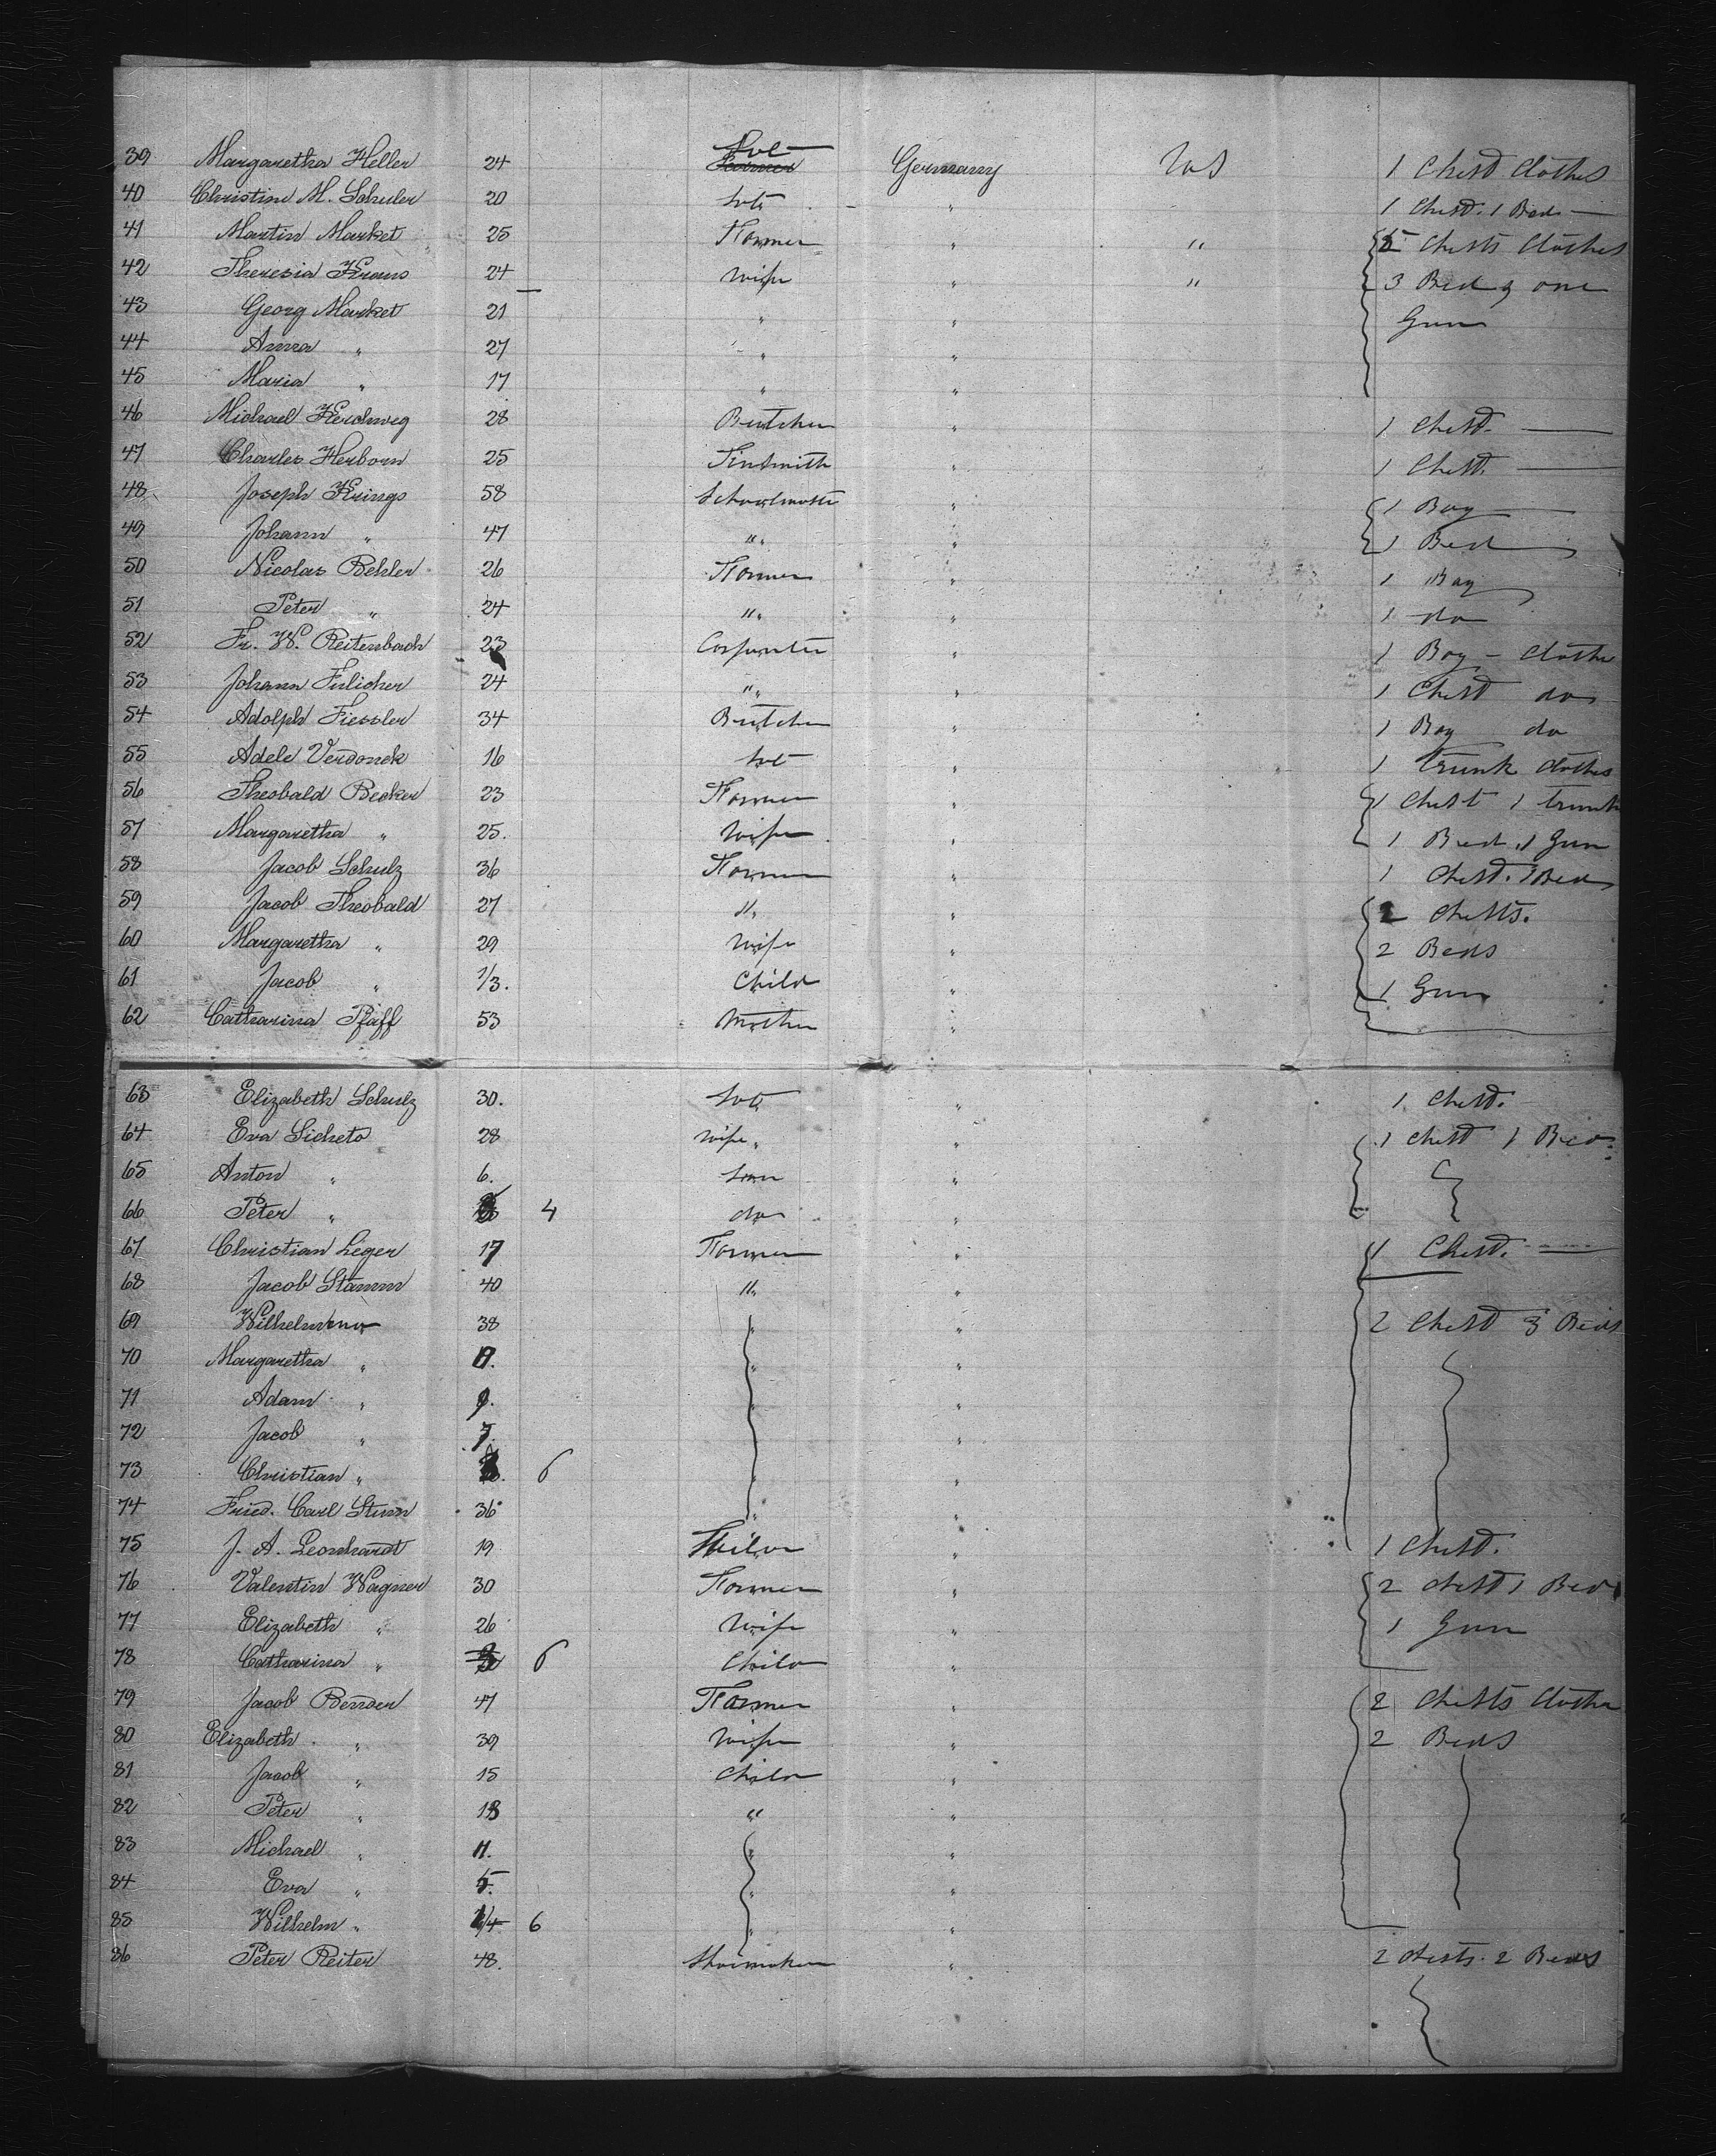 39 Margaretha Heller 24 Germany U.S 1 Chest Clothes
40 Christine M. Schuler 20 " 1 Chest. 1 Bed —
41 Martin Market 25 Farmer " " 5 Chests Clothes
42 Theresia Kraus 24 Wife " " 3 Bed & one
43 Georg Market 21 " " Gun
44 Anna " 27 " "
45 Maria " 17 " "
46 Michael 28 Butcher " 1 Chest. —
47 Charles Herborn 25 Tinsmith " 1 Chest. —
48 Joseph Krings 58 " 1 Bag —
49 Johann " 47 " " 1 Bed
50 Nicolas Behler 26 Farmer " 1 Bag
51 Peter " 24 " " 1 do
52 Fr. W. Reitenbach 23 Carpenter " 1 Bag – Clothes
53 Johann 24 " " 1 Chest do
54 Adolph Fiessler 34 Butcher " 1 Bag do
55 Adele Verdonck 16 " 1 trunk clothes
56 Theobald Becker 23 Farmer " 1 Chest 1 trunk
57 Margaretha " 25. Wife " 1 Bed . 1 Gun
58 Jacob Schulz 36 Farmer " 1 Chest. 1 Bed
59 Jacob Theobald 27 " " 2 Chests.
60 Margaretha " 29 Wife " 2 Beds
61 Jacob " 1/3. Child " 1 Gun
62 Catharina Pfaff 53 Mother "
63 Elizabeth Schulz 30. " 1 Chest.
64 Eva 28 Wife " 1 Chest 1 Bed
65 Anton " 6. Son "
66 Peter " 4 do "
67 Christian Leger 17 Farmer " 1 Chest. —
68 Jacob Stamm 40 " "
69 Wilhelmina 38 " " 2 Chest 3 Beds
70 Margaretha " " "
71 Adam " 9. " "
72 Jacob " 7. "
73 Christian " 6 " "
74 Fried. Carl 36 " "
75 J. A. Leonhardt 19 " 1 Chest.
76 Valentin Wagner 30 Farmer " 2 Chest 1 Bed
77 Elizabeth " 26 Wife " 1 Gun
78 Catharina " 6 Child "
79 Jacob Bender 47 Farmer " 2 Chests Clothes
80 Elizabeth " 39 Wife " 2 Beds
81 Jacob " 15 Child "
82 Peter " 13 " "
83 Michael " 11. " "
84 Eva " 5. " "
85 Wilhelm " 6 " "
86 Peter Reiter 48. Shoemaker " 2 Chests. 2 Beds